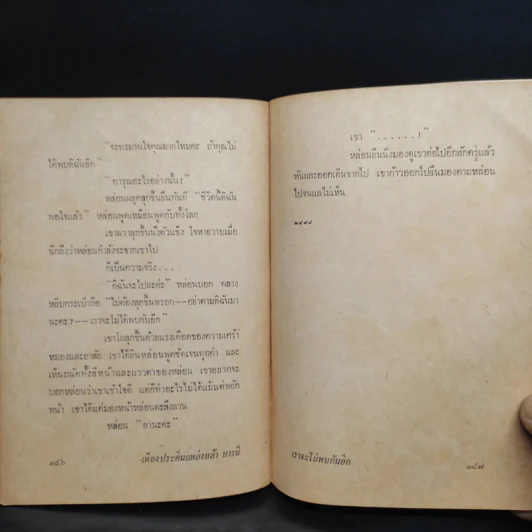 "จะทรมานใจคุณมากไหมคะ ถ้าคุณไม่
ได้พบดิฉันอีก"
"ทารุณอะไรอย่างนั้น!"
หล่อนผลุกลุกขึ้นยืนทันที "ชีวิตนี้ดิฉัน
พอใจแล้ว" หล่อนพูดเหมือนพูดกับทั้งโลก
เขาผวาลุกขึ้นนั่งตัวแข็ง ใจหายวาบเมื่อ
นึกถึงว่าหล่อนกำลังจะจากเขาไป
ก็เป็นความจริง...
"ดิฉันจะไปละค่ะ" หล่อนบอก พลาง
หยิบกระเป๋าถือ "ไม่ต้องลุกขึ้นหรอก--อย่าตามดิฉันมา
นะคะ?--เราจะไม่ได้พบกันอีก"
เขาโผลุกขึ้นด้วยแรงเดือดของความเศร้า
หมองและอาลัย เขาได้ยินหล่อนพูดชัดเจนทุกคำ และ
เห็นถนัดทั้งสีหน้าและแววตาของหล่อน เขาอยากจะ
บอกหล่อนว่าเขาเข้าใจดี แต่ก็ทำอะไรไม่ได้แม้แต่พยัก
หน้า เขาได้แต่มองหน้าหล่อนตะลึงลาน
หล่อน "ลานะคะ"
๑๔๖ เพียงประดิ่นแหล่งหล้า บารนี
เขา "......!"
หล่อนยืนนิ่งมองดูเขาต่อไปอีกสักครู่แล้ว
หันผละออกเดินจากไป เขาก้าวออกไปยืนมองตามหล่อน
ไปจนแลไม่เห็น
เราจะไม่พบกันอีก ๑๔๗